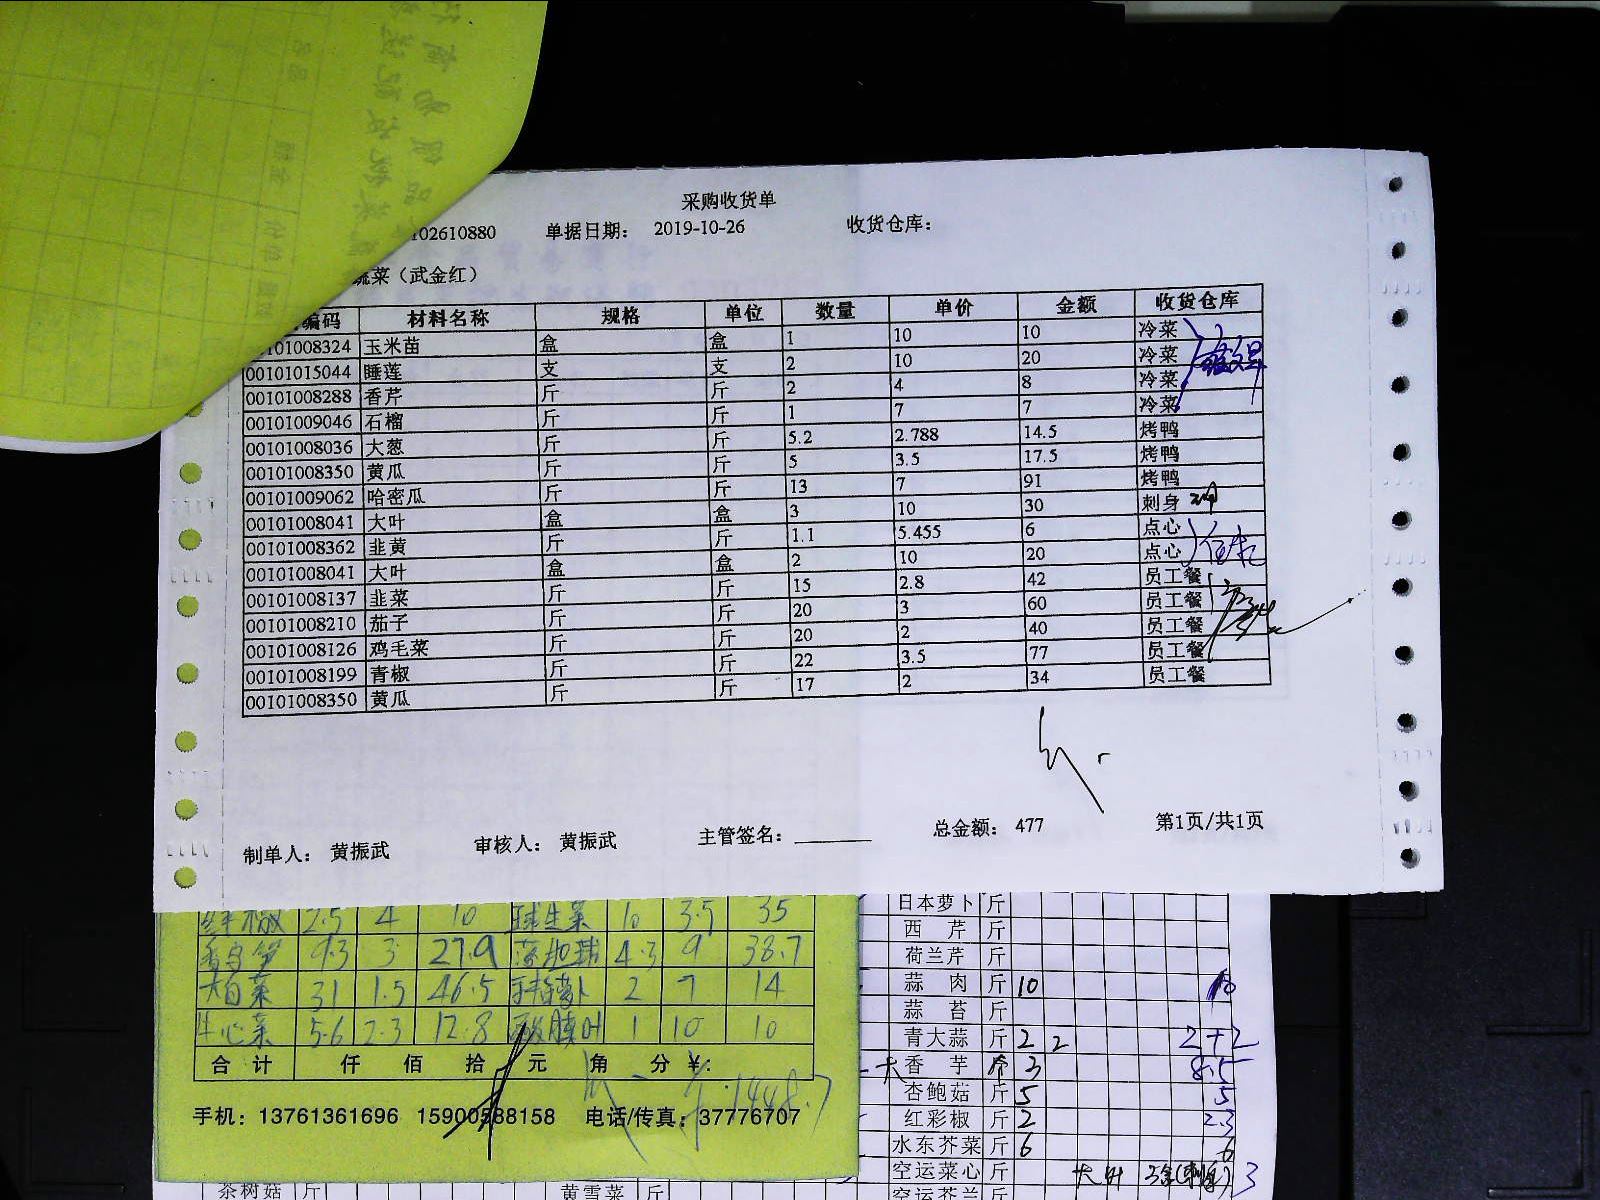 采购收货单
102610880 单据日期： 2019-10-26 收货仓库：
蔬菜（武金红）
编码 材料名称 规格 单位 数量 单价 金额 收货仓库
00101008324 玉米苗 盒 盒 1 10 10 冷菜
00101015044 睡莲 支 支 2 10 20 冷菜
00101008288 香芹 斤 斤 2 4 8 冷菜
00101009046 石榴 斤 斤 1 7 7 冷菜
00101008036 大葱 斤 斤 5.2 2.788 14.5 烤鸭
00101008350 黄瓜 斤 斤 5 3.5 17.5 烤鸭
00101009062 哈密瓜 斤 斤 13 7 91 烤鸭
00101008041 大叶 盒 盒 3 10 30 刺身
00101008362 韭黄 斤 斤 1.1 5.455 6 点心
00101008041 大叶 盒 盒 2 10 20 点心
00101008137 韭菜 斤 斤 15 2.8 42 员工餐
00101008210 茄子 斤 斤 20 3 60 员工餐
00101008126 鸡毛菜 斤 斤 20 2 40 员工餐
00101008199 青椒 斤 斤 22 3.5 77 员工餐
00101008350 黄瓜 斤 斤 17 2 34 员工餐
制单人： 黄振武 审核人： 黄振武 主管签名： 总金额： 477 第1页/共1页
2.5 4 10 球生菜 10 3.5 35
9.3 3 27.9 4.3 9 38.7
大白菜 31 1.5 46.5 2 7 14
牛心菜 5.6 2.3 12.8 1 10 10
合 计 仟 佰 拾 元 角 分 ¥: 1448.7
手机：13761361696 15900588158 电话/传真：37776707
日本萝卜 斤
西 芹 斤
荷兰芹 斤
蒜 肉 斤 10 10
蒜 苔 斤
青大蒜 斤 2 2 2+2
大 香 芋 个 3 8.5
杏鲍菇 斤 5 5
红彩椒 斤 2 2.3
水东芥菜 斤 6 6
空运菜心 斤 大叶 3盒(刺身) 3
空运芥兰 斤
茶树菇 斤 黄雪菜 斤